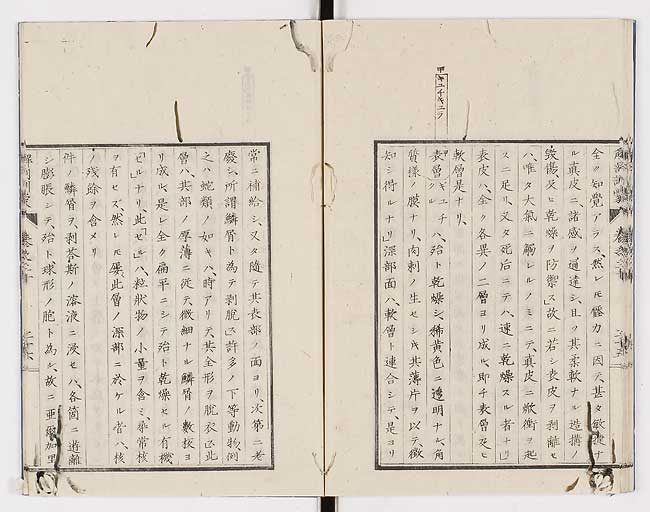 甲キユチキユラ
全ク知覺アラス、然レモ壓力ニ因テ、甚タ敏捷ナ
ル真皮ニ、諸感ヲ通達シ、且ク其柔軟ナル造構ノ
毀傷及ヒ乾燥ヲ防禦ス」故ニ若シ表皮ヲ剥離セ
ハ、唯タ大氣ニ觸レルノミニテ、真皮ニ焮衝ヲ起
スニ足リ、又タ死后ニテハ、速ニ乾燥スル者ナリ」
表皮ハ、全ク各異ノ二層ヨリ成ル、即チ表層及ヒ
軟層是ナリ、
表層ハ、殆ト乾燥シ、稀黄色ニ透明ナル、角
質樣ノ膜ナリ、肉刺ノ生セシ其薄片ヲ以テ、徴
知シ得ルナリ」深部面ハ、軟層ト連合シテ、是ヨリ
常ニ補給シ、又タ隨テ其表部ノ面ヨリ、次第ニ老
廢シ、所謂鱗屑ト為テ剥脫ス」許多ノ下等動物、例
之ハ蛇類ノ如キハ、時アリテ、其全形ヲ脫衣ス」此
層ハ、其部ノ厚薄ニ従テ、微細ナル鱗屑ノ數枚ヨ
リ成ル、是レ全ク扁平ニシテ、殆ト乾燥セル有機
ナリ、此ハ、粒狀物ノ小量ヲ含ミ、平常核
ヲ有セス、然レモ此層ノ深部ニ於ケル者ハ、核
ノ殘餘ヲ含メリ
件ノ鱗屑ヲ、剥荅斯ノ溶液ニ浸セハ、各箇ニ遊離
シ膨脹シテ、殆ト球形ノ胞ト為ル、故ニ亜爾加里